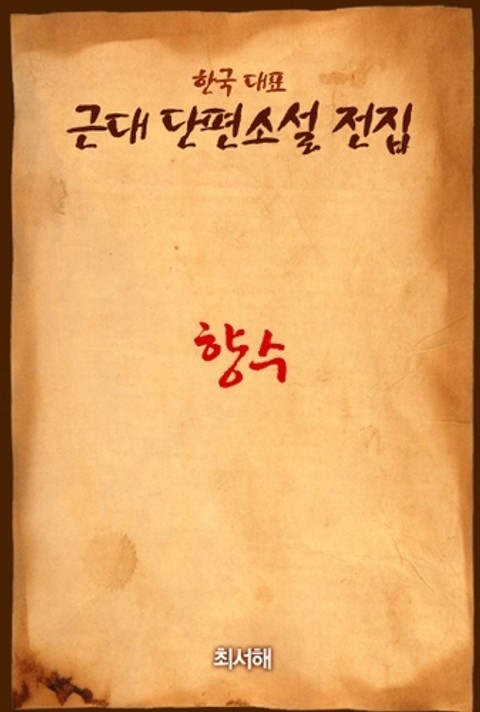 한국 대표
근대 단편소설 전집
향수
최서해